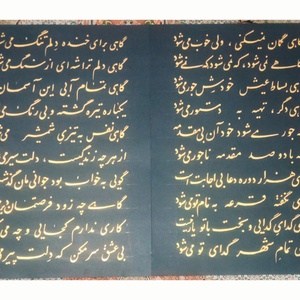 گمان نمیکنی ، ولی خوب می‌شود
نمی‌شود ، که نمی‌شود که نمی‌شود
بساط عیش خودش جور می‌شود
دگر ، تهیه بدستور می‌شود
جور می‌شود خود آن بی مقدمه
با دو صد مقدمه ناجور می‌شود
هزار دوره دعا بی اجابت است
نگفته قرعه به نام تو می‌شود
گدای گدایی و بخت با تو یار نیست
تمام شهر گدای تو می‌شود
گاهی برای خنده دلم تنگ می‌شود
گاهی دلم تراشه ای از سنگ می‌شود
گاهی تمام آبی این آسمان
یکباره تیره گشته و بی رنگ می‌شود
گاهی نفس به تیزی شمشیر می‌شود
از هر چه زندگیست ، دلت سیر
گویی به خواب بود جوانی مان گذشت
گاهی چه زود فرصتمان دیر
کاری ندارم کجایی و چه
بی عشق سر مکن که دلت پیر